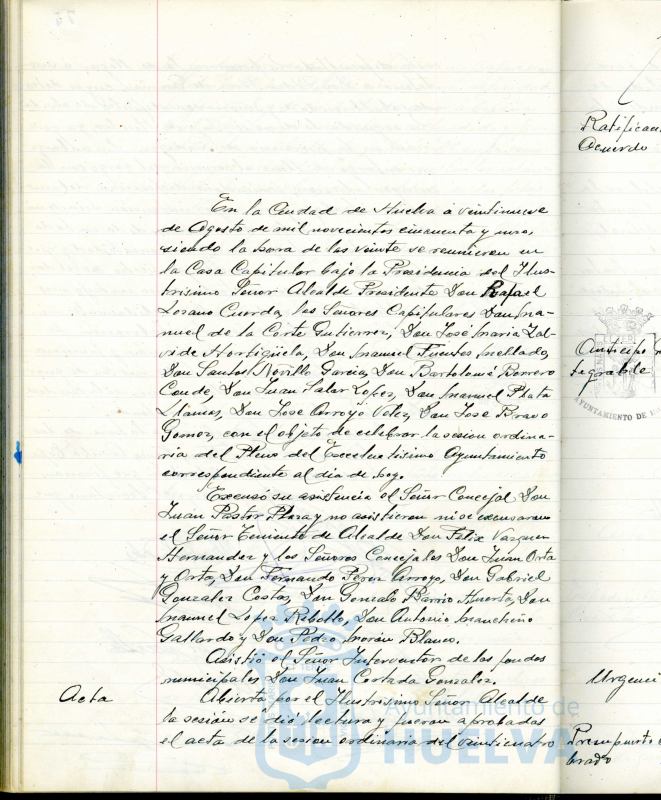 En la Ciudad de Huelva a veintinueve
de Agosto de mil novecientos cincuenta y uno,
siendo la hora de las veinte se reunieron en
la Casa Capitular bajo la Presidencia del Ilus-
trisimo Señor Alcalde Presidente Don Rafael
Lozano Cuerda, los Señores Capitulares Don Ma-
nuel de la Corte Gutierrez, Don José Maria Zal-
vide Hortigüela, Don Manuel Fuentes Mellado,
Don Santos Novillo Garcia, Don Bartolomé Borrero
Conde, Don Juan Salar Lopez, Don Manuel Plata
Llamas, Don Jose Arroyo Velez, Don Jose Bravo
Gomez, con el objeto de celebrar la sesion ordina-
ria del Pleno del Excelentisimo Ayuntamiento
correspondiente al dia de hoy.
Excusó su asistencia el Señor Concejal Don
Juan Pastor Plaza y no asistieron ni se excusaron
el Señor Teniente de Alcalde Don Felix Vazquez
Hernandez y los Señores Concejales Don Juan Orta
y Orta, Don Fernando Perez Arroyo, Don Gabriel
Gonzalez Costas, Don Gonzalo Barrio Huerta, Don
Manuel Lopez Rebollo, Don Antonio Mancheño
Gallardo y Don Pedro Morán Blanco.
Asistió el Señor Interventor de los fondos
municipales Don Juan Cortada Gonzalez.
Acta
Abierta por el Ilustrisimo Señor Alcalde
la sesión se dió lectura y fueron aprobadas
el acta de la sesion ordinaria del veinticuatro
Acuerdo
Anticipo
AYUNTAMIENTO DE
Ayuntamiento de
HUELVA